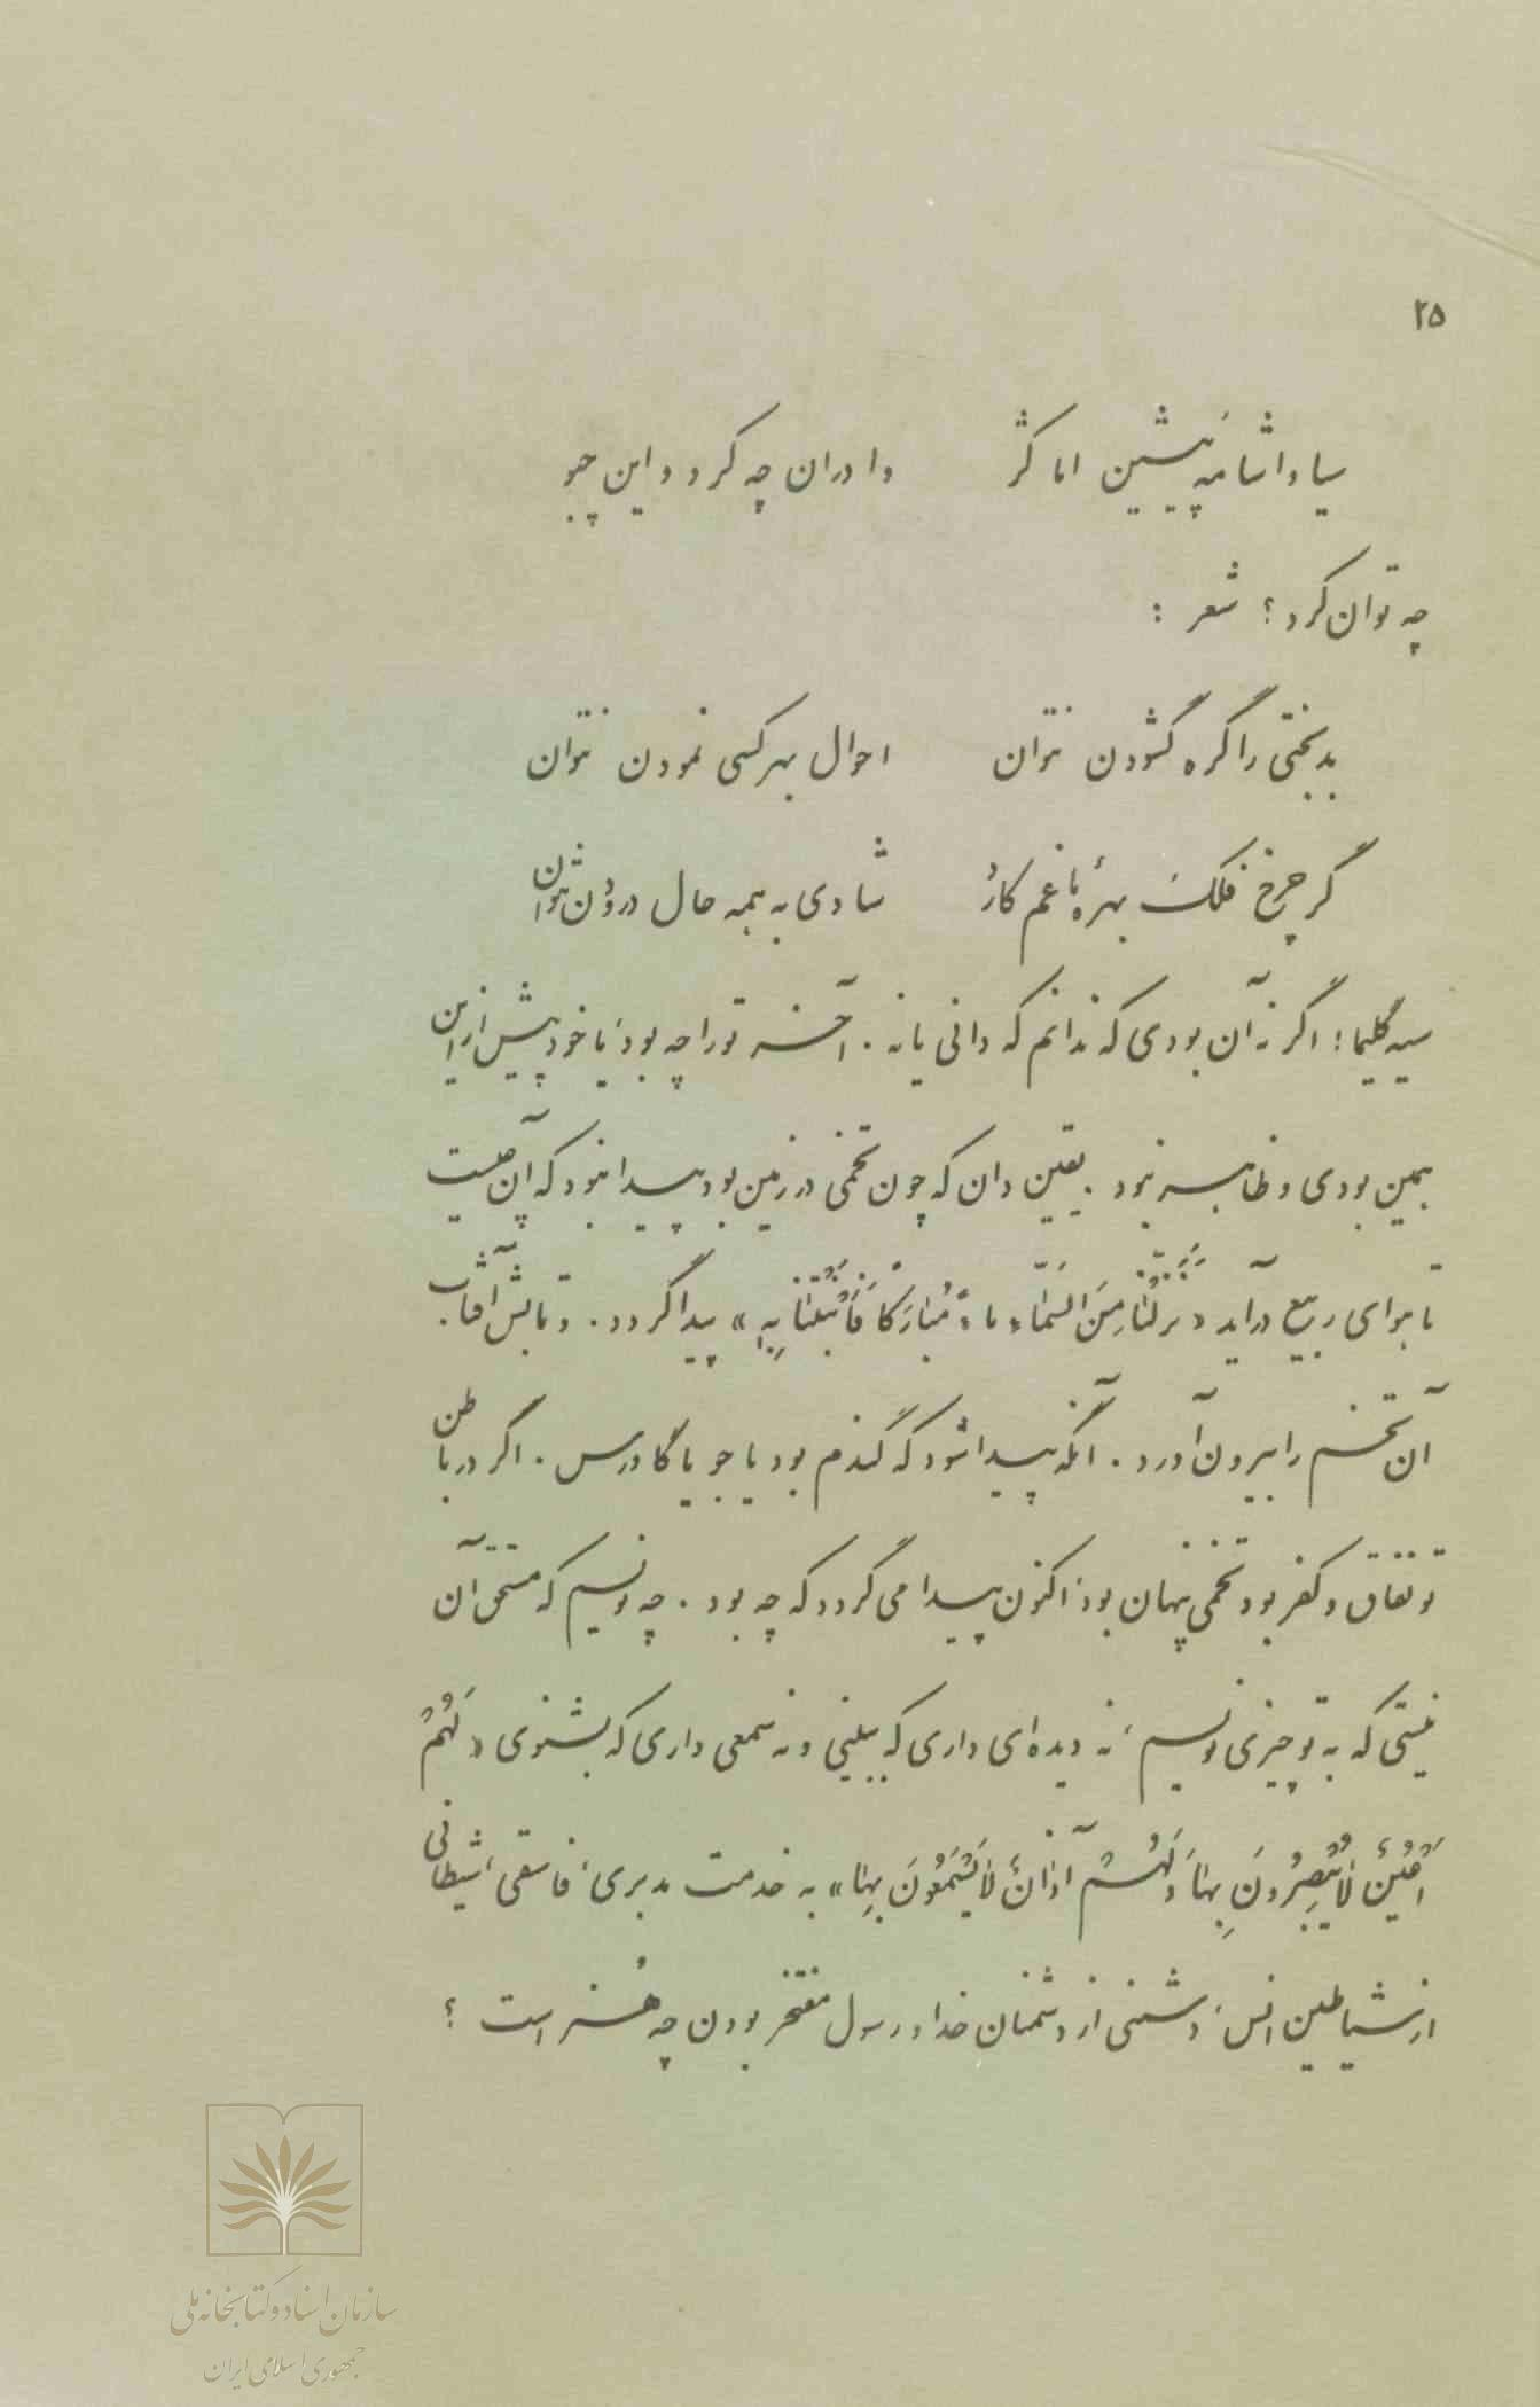 ۲۵
سیا واشامه پیشین اما کژ وا دران چه کرد و این چو
چه توان کرد؟ شعر :
بدبختی را گره گشودن نتوان احوال بهر کسی نمودن نتوان
گر چرخ فلک بهرهٔ ما غم کارد شادی به همه حال درودن نتوان
سیه گلیما! اگر نه آن بودی که ندانم که دانی یا نه. آخر تو را چه بود، یا خود پیش از این
همین بودی و ظاهر نبود. یقین دان که چون تخمی در زمین بود پیدا نبود که آن چیست
تا هوای ربیع درآید «نزّلنا مِنَ السَّماءِ ماءً مُبارَکًا فَأَنْبَتْنا بِهِ» پیدا گردد. و تابش آفتاب
آن تخم را بیرون آورد. آنگه پیدا شود که گندم بود یا جو یا گاورس. اگر در باطن
تو نفاق و کفر بود تخمی پنهان بود، اکنون پیدا می گردد که چه بود. چه نویسم که مستحق آن
نیستی که به تو چیزی نویسم، نه دیده‌ای داری که ببینی و نه سمعی داری که بشنوی «لَهُمْ
أَعْیُنٌ لا یُبْصِرُونَ بِها وَ لَهُمْ آذانٌ لا یَسْمَعُونَ بِها» به خدمت مدبری، فاسقی، شیطانی
از شیاطین انس، دشمنی از دشمنان خدا و رسول مفتخر بودن چه هنر است ؟
سازمان اسناد و کتابخانه ملی
جمهوری اسلامی ایران